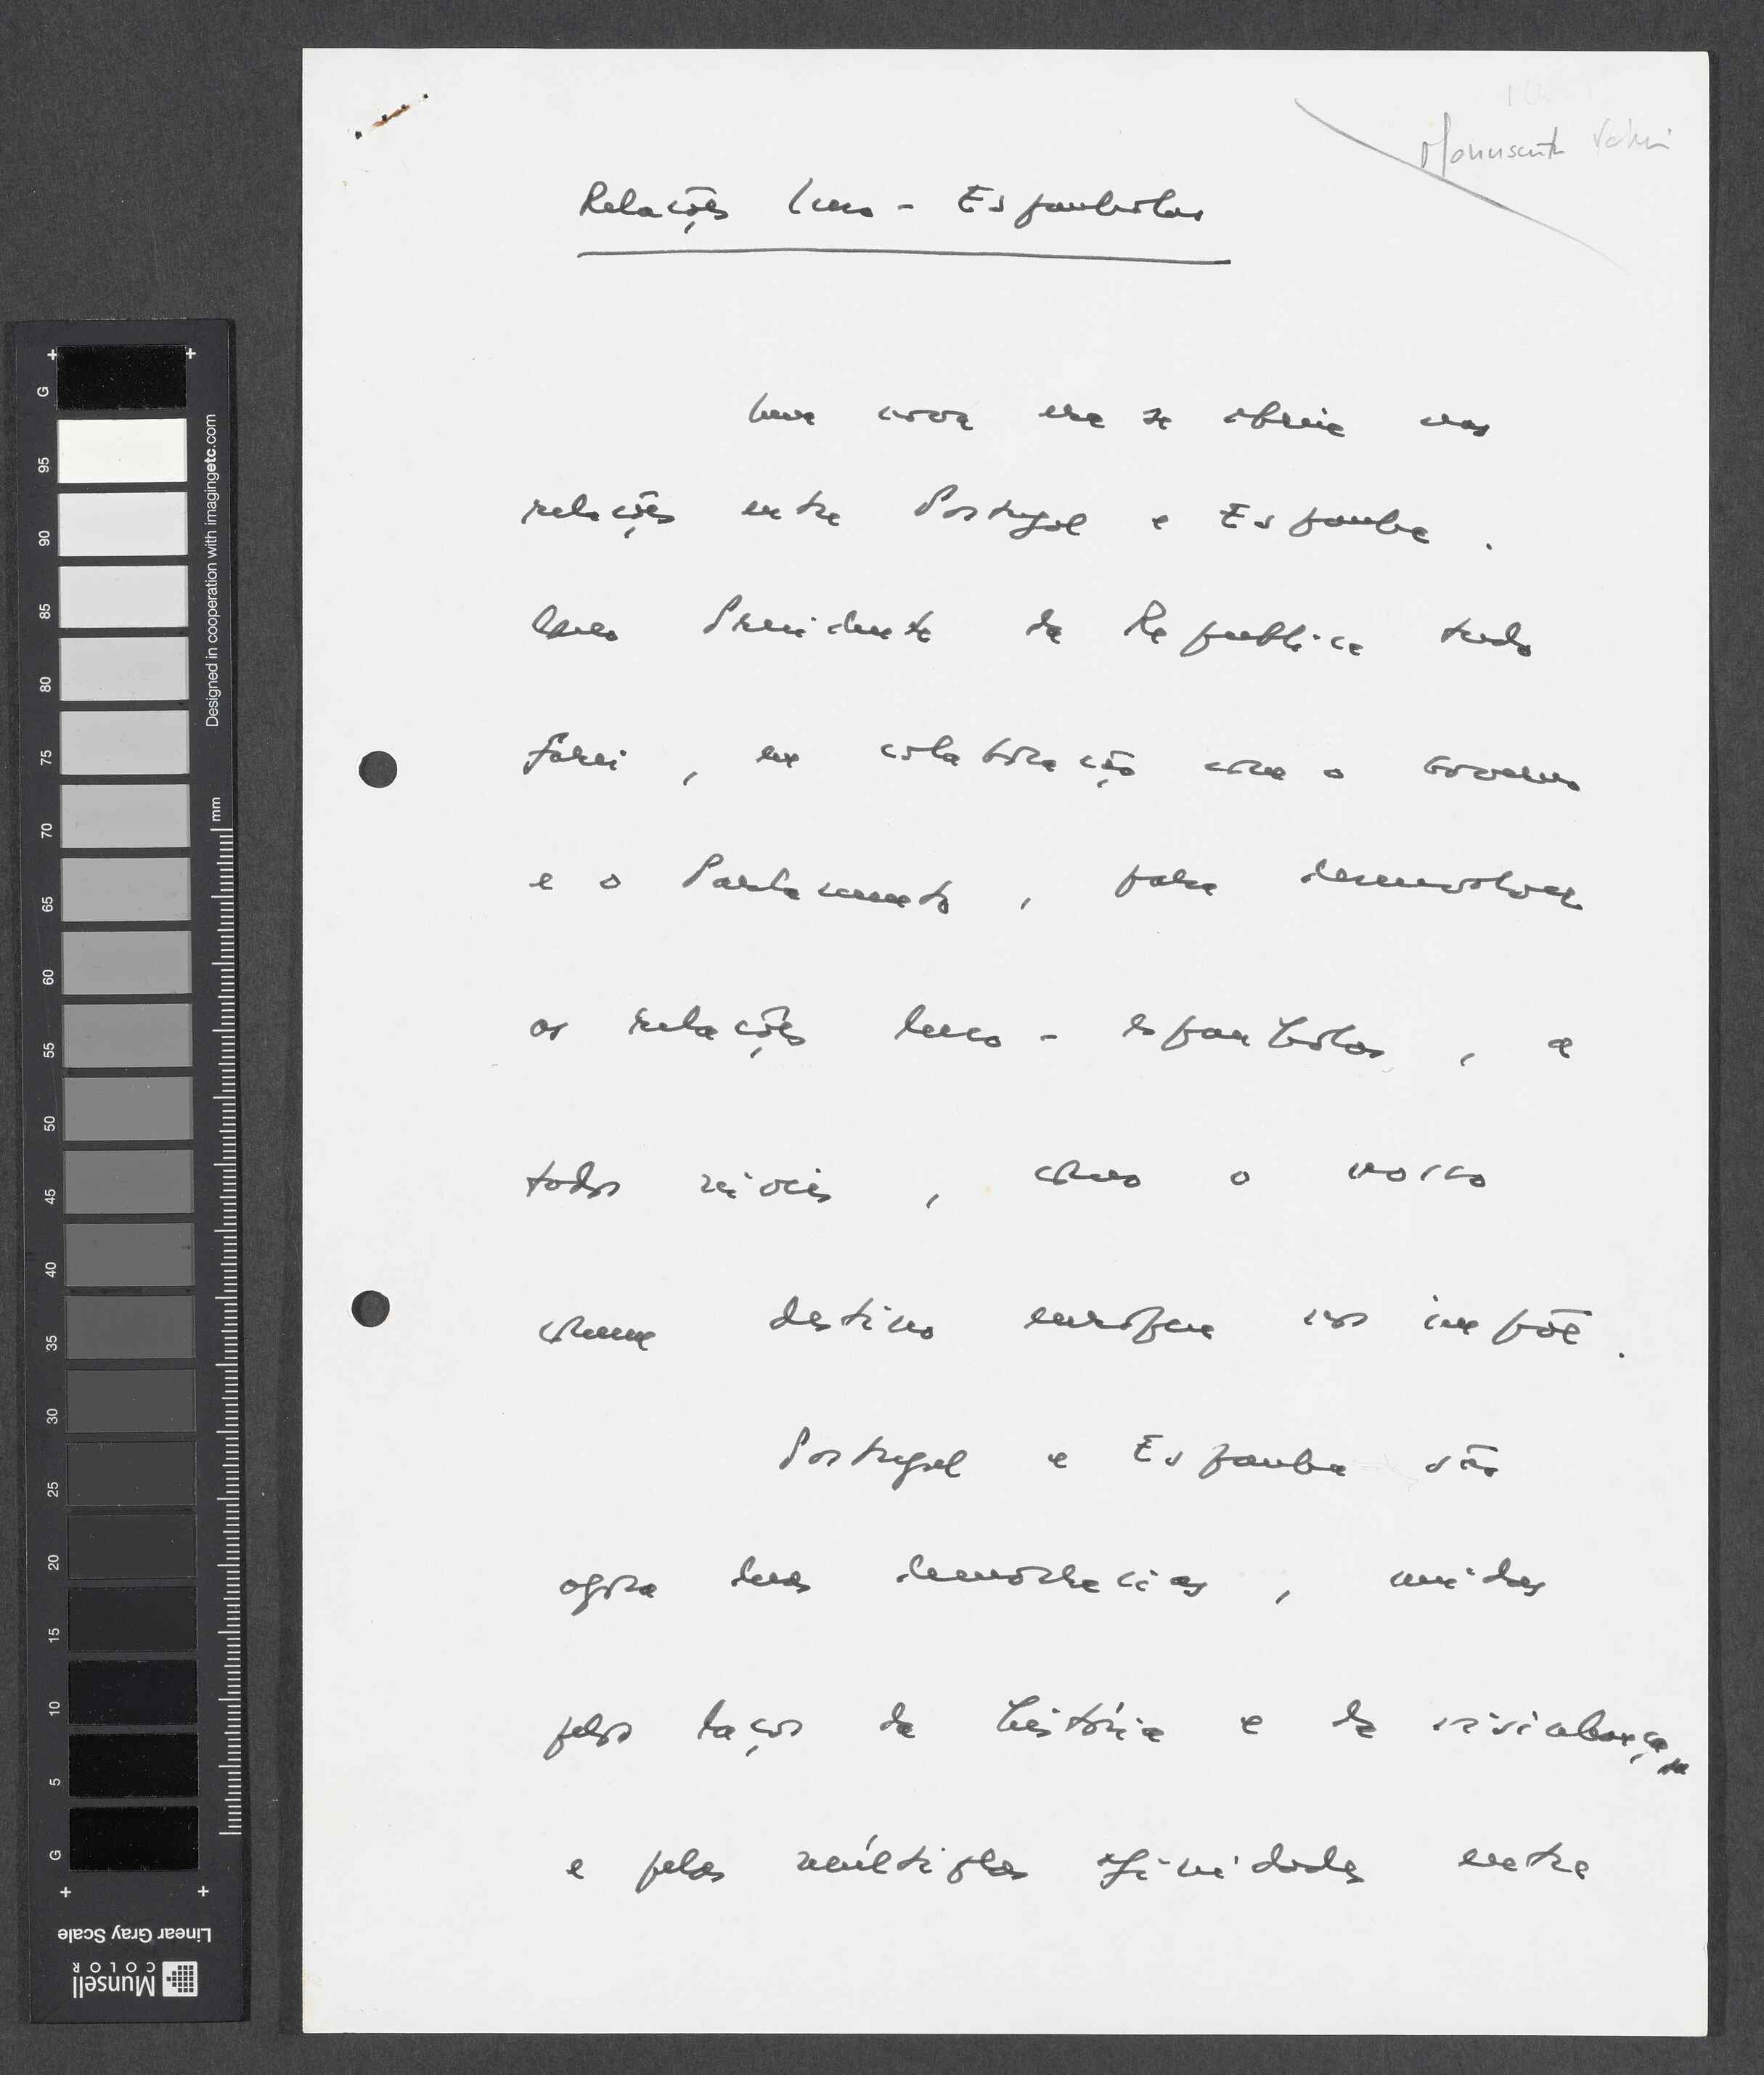 Manuscrito
Relações Luso - Espanholas
Uma nova era se abriu nas
relações entre Portugal e Espanha.
Como Presidente da Republica tudo
farei, em colaboração com o Governo
e o Parlamento, para desenvolver
as relações luso - espanholas, a
todos níveis, como o nosso
comum destino europeu nos impõe.
Portugal e Espanha são
agora duas democracias, unidas
pelos laços da história e da vizinhança
e pelas múltiplas afinidades entre
G
95
90
85
80
75
70
65
60
55
50
45
40
35
30
25
20
15
10
5
G
Designed in cooperation with imagingetc.com
mm
Linear Gray Scale
Munsell
COLOR